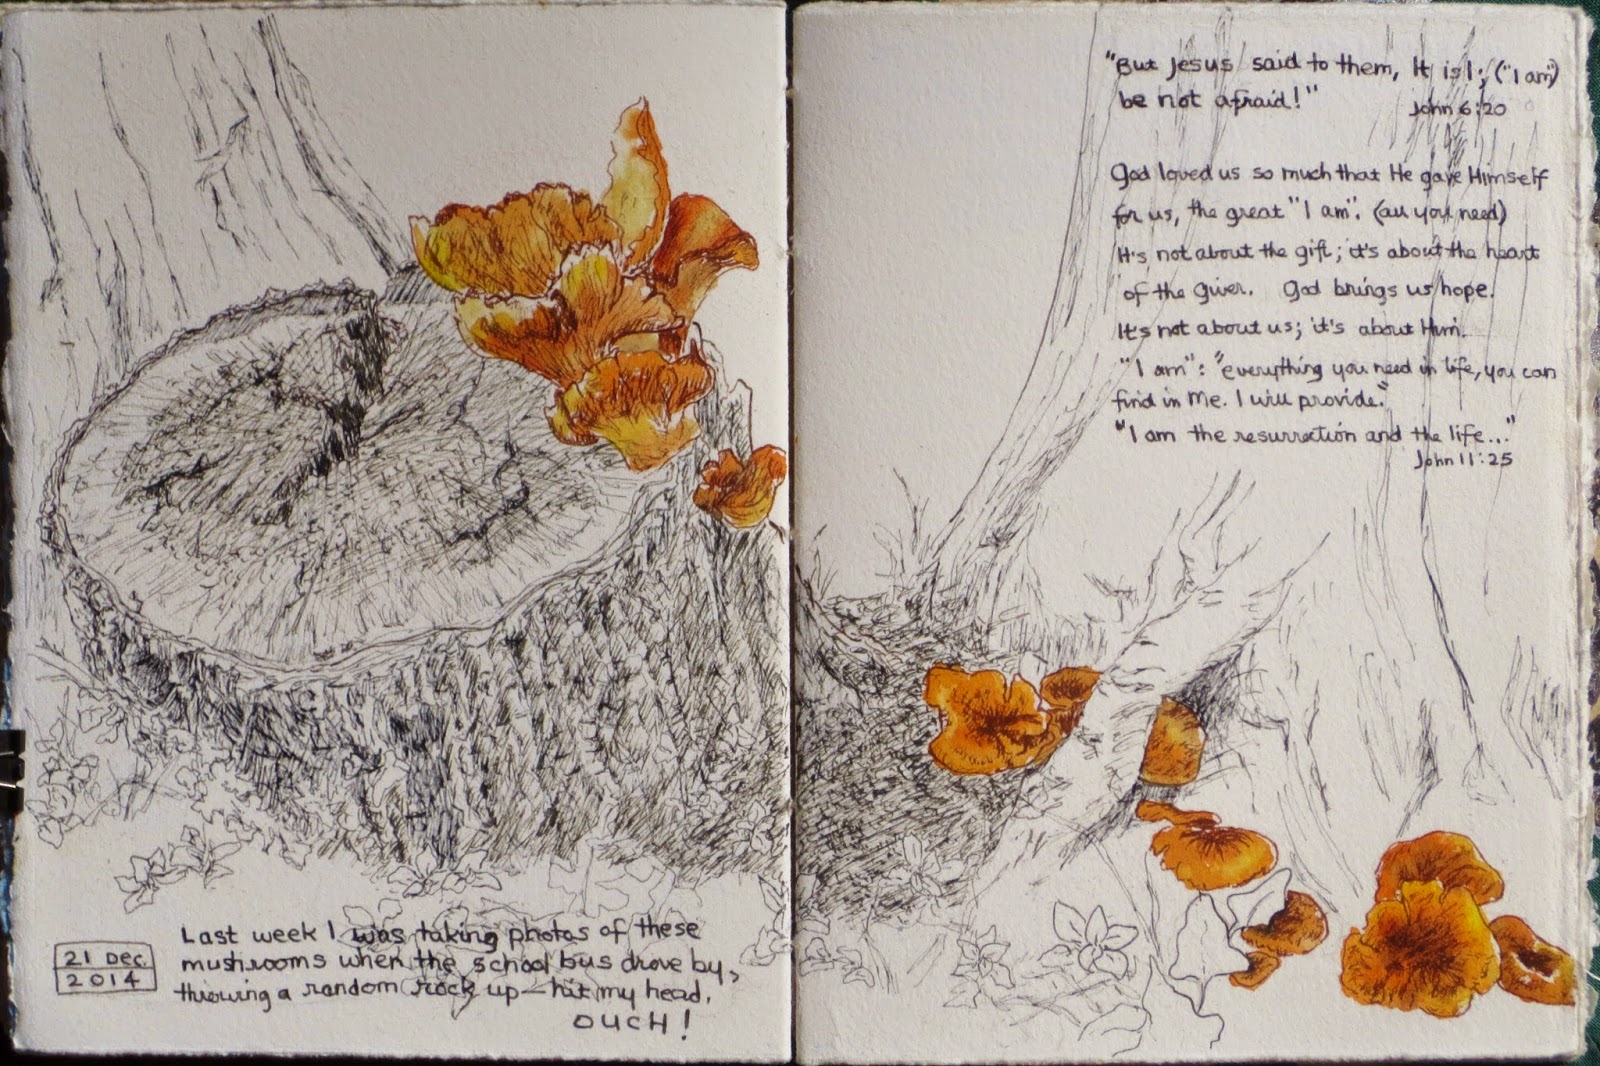 21 Dec.
2014
Last week I was taking photos of these
mushrooms when the school bus drove by,
throwing a random rock up—hit my head.
OUCH!
"But Jesus said to them, It is I; ("I am")
be not afraid!"
John 6:20
God loved us so much that He gave Himself
for us, the great "I am". (all you need)
It's not about the gift; it's about the heart
of the Giver. God brings us hope.
It's not about us; it's about Him.
"I am": "everything you need in life, you can
find in Me. I will provide."
"I am the resurrection and the life..."
John 11:25